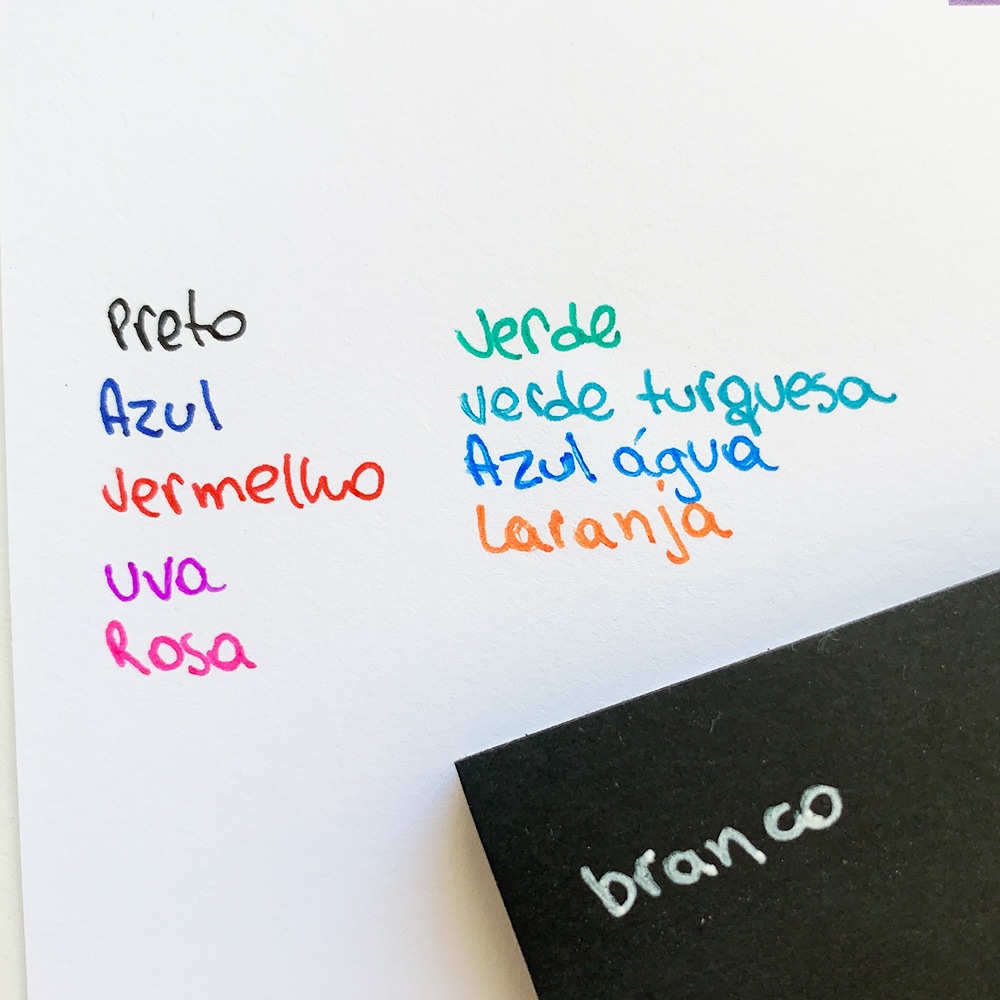 Preto
Azul
Vermelho
uva
Rosa
Verde
verde turquesa
Azul água
Laranja
branco